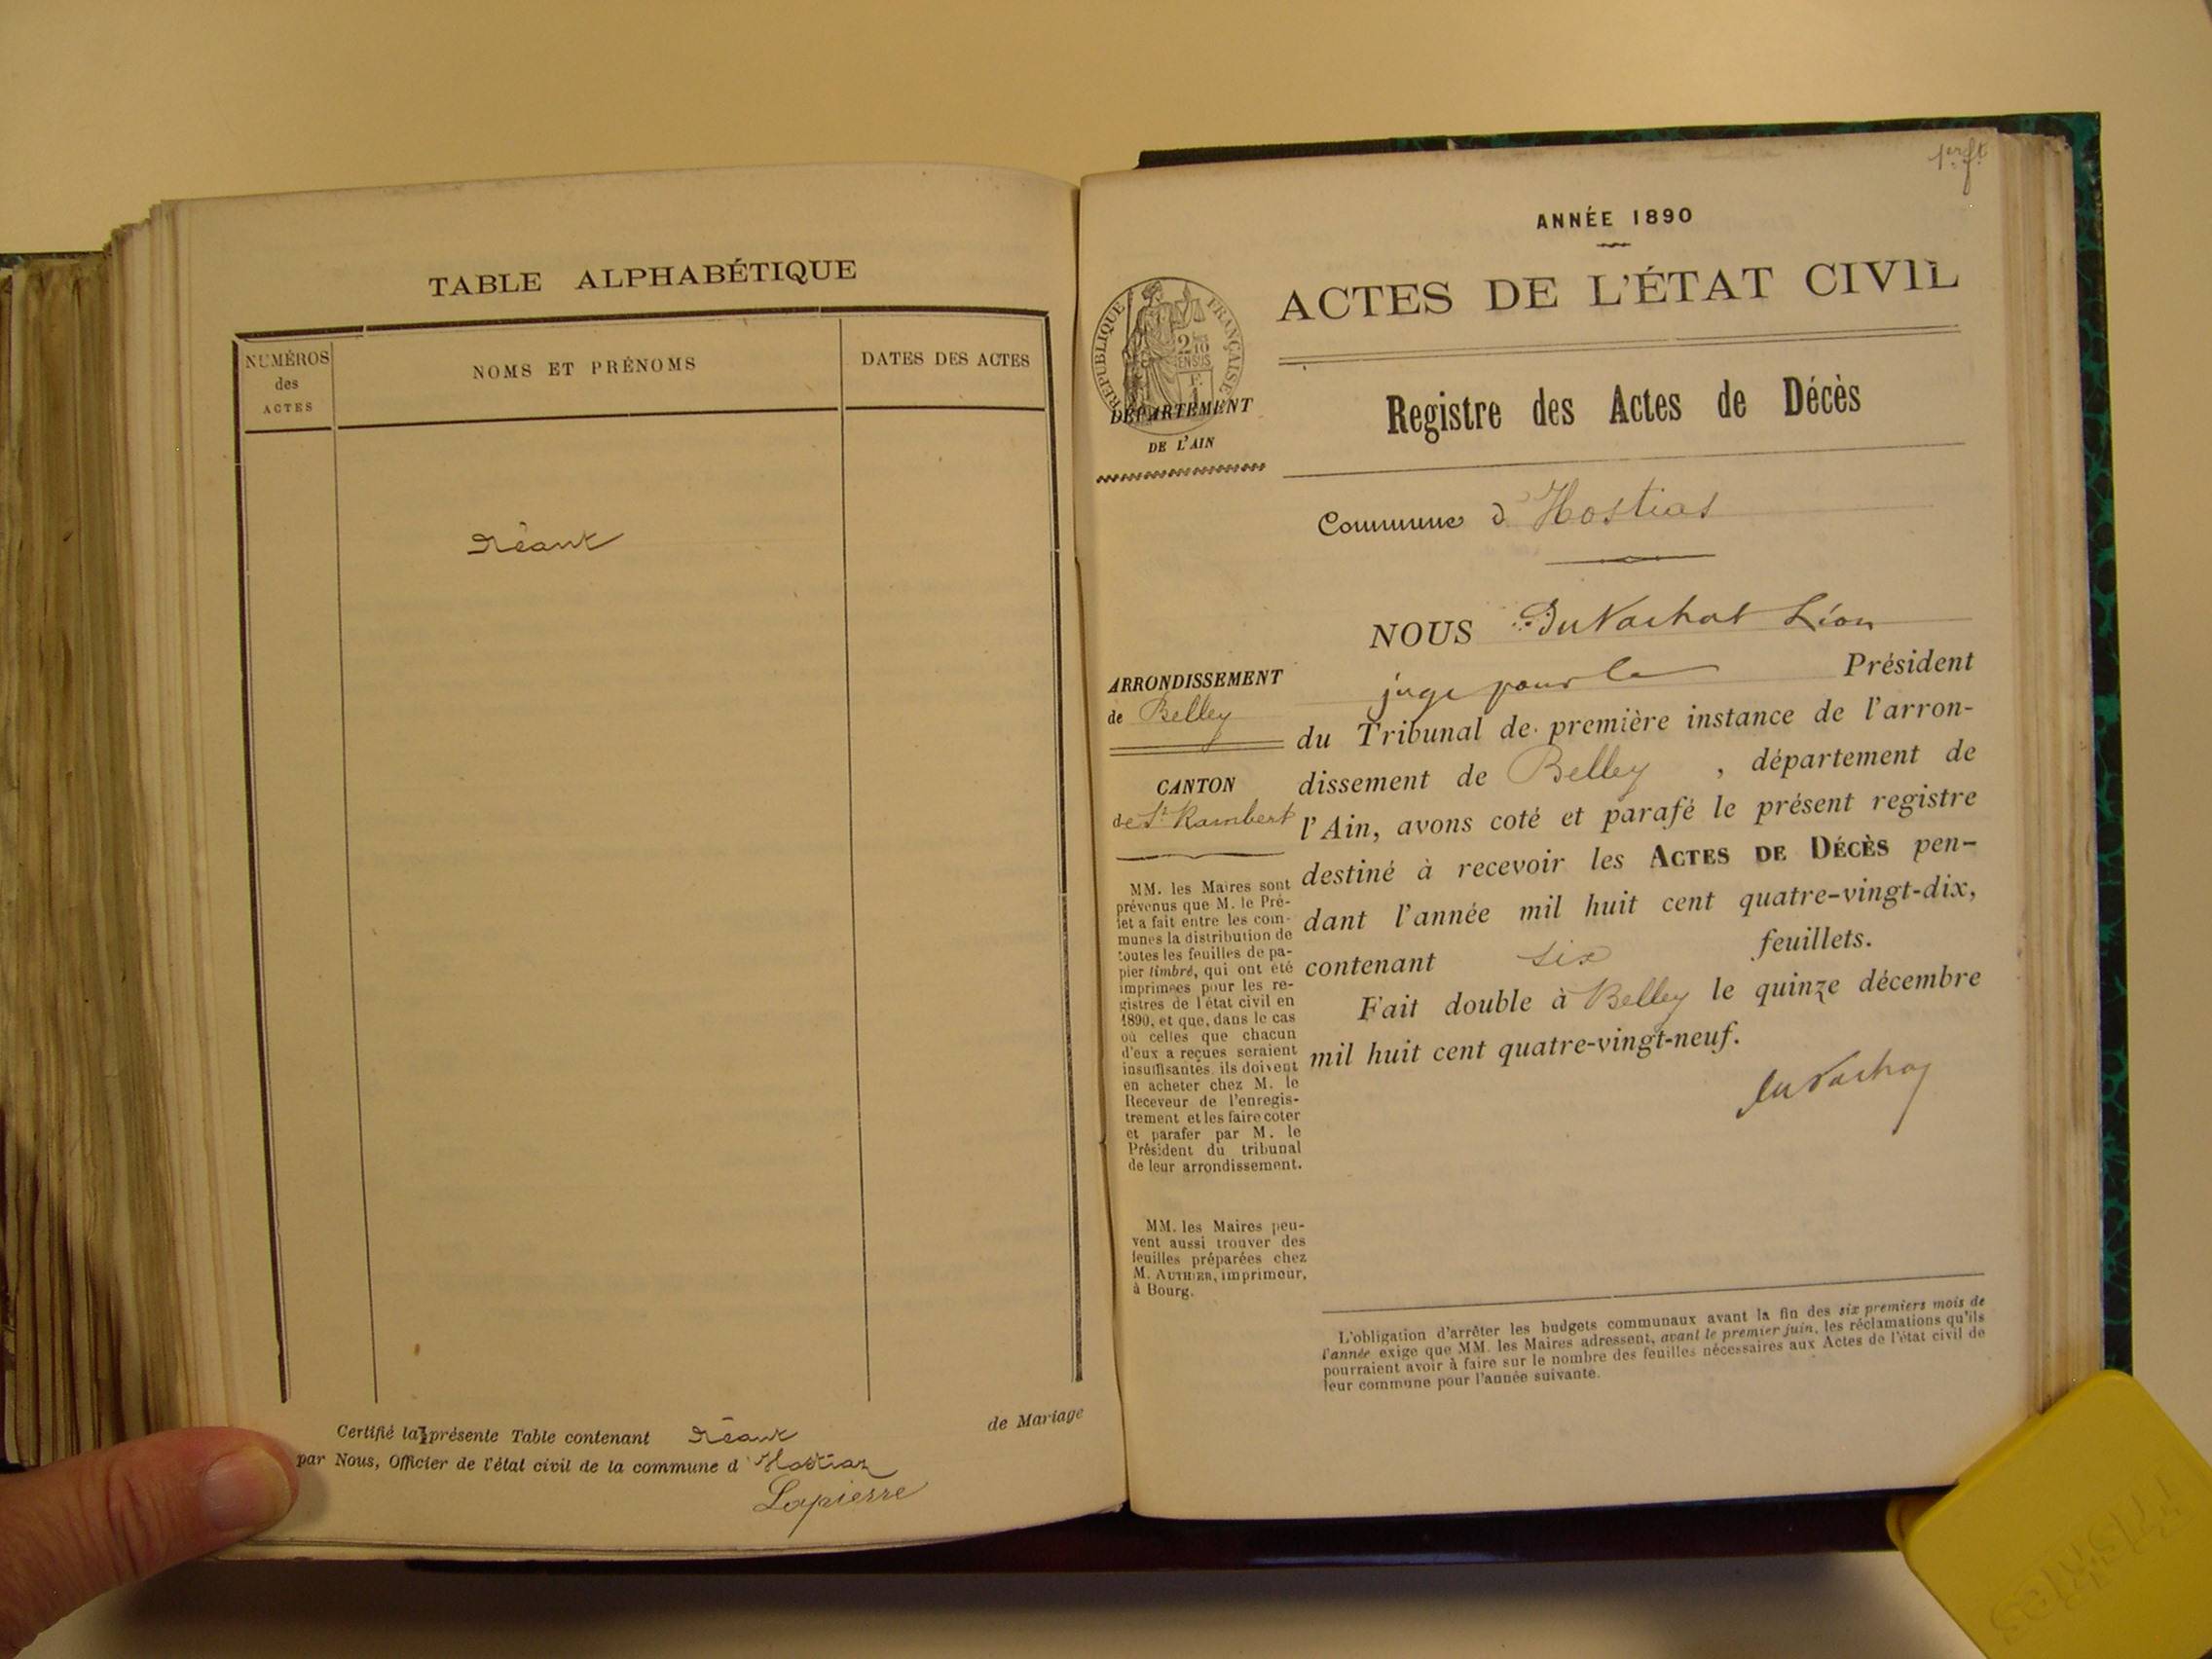 TABLE ALPHABÉTIQUE
NUMÉROS
des
ACTES
NOMS ET PRÉNOMS
DATES DES ACTES
Néant
Certifié la présente Table contenant Néant de Mariage
par Nous, Officier de l'état civil de la commune d'Hostiaz
Lapierre
1er ft.
ANNÉE 1890
ACTES DE L'ÉTAT CIVIL
RÉPUBLIQUE FRANÇAISE
2/10
EN SUS
F.
1
DÉPARTEMENT
DE L'AIN
Registre des Actes de Décès
Commune d'Hostias
NOUS Du Vachat Léon
juge pour le Président
du Tribunal de première instance de l'arron-
dissement de Belley, département de
l'Ain, avons coté et parafé le présent registre
destiné à recevoir les ACTES DE DÉCÈS pen-
dant l'année mil huit cent quatre-vingt-dix,
contenant six feuillets.
Fait double à Belley le quinze décembre
mil huit cent quatre-vingt-neuf.
du Vachat
ARRONDISSEMENT
de Belley
CANTON
de St Rambert
MM. les Maires sont
prévenus que M. le Pré-
fet a fait entre les com-
munes la distribution de
toutes les feuilles de pa-
pier timbré, qui ont été
imprimées pour les re-
gistres de l'état civil en
1890, et que, dans le cas
où celles que chacun
d'eux a reçues seraient
insuffisantes, ils doivent
en acheter chez M. le
Receveur de l'enregis-
trement et les faire coter
et parafer par M. le
Président du tribunal
de leur arrondissement.
MM. les Maires peu-
vent aussi trouver des
feuilles préparées chez
M. AUTHIER, imprimeur,
à Bourg.
L'obligation d'arrêter les budgets communaux avant la fin des six premiers mois de
l'année exige que MM. les Maires adressent, avant le premier juin, les réclamations qu'ils
pourraient avoir à faire sur le nombre des feuilles nécessaires aux Actes de l'état civil de
leur commune pour l'année suivante.